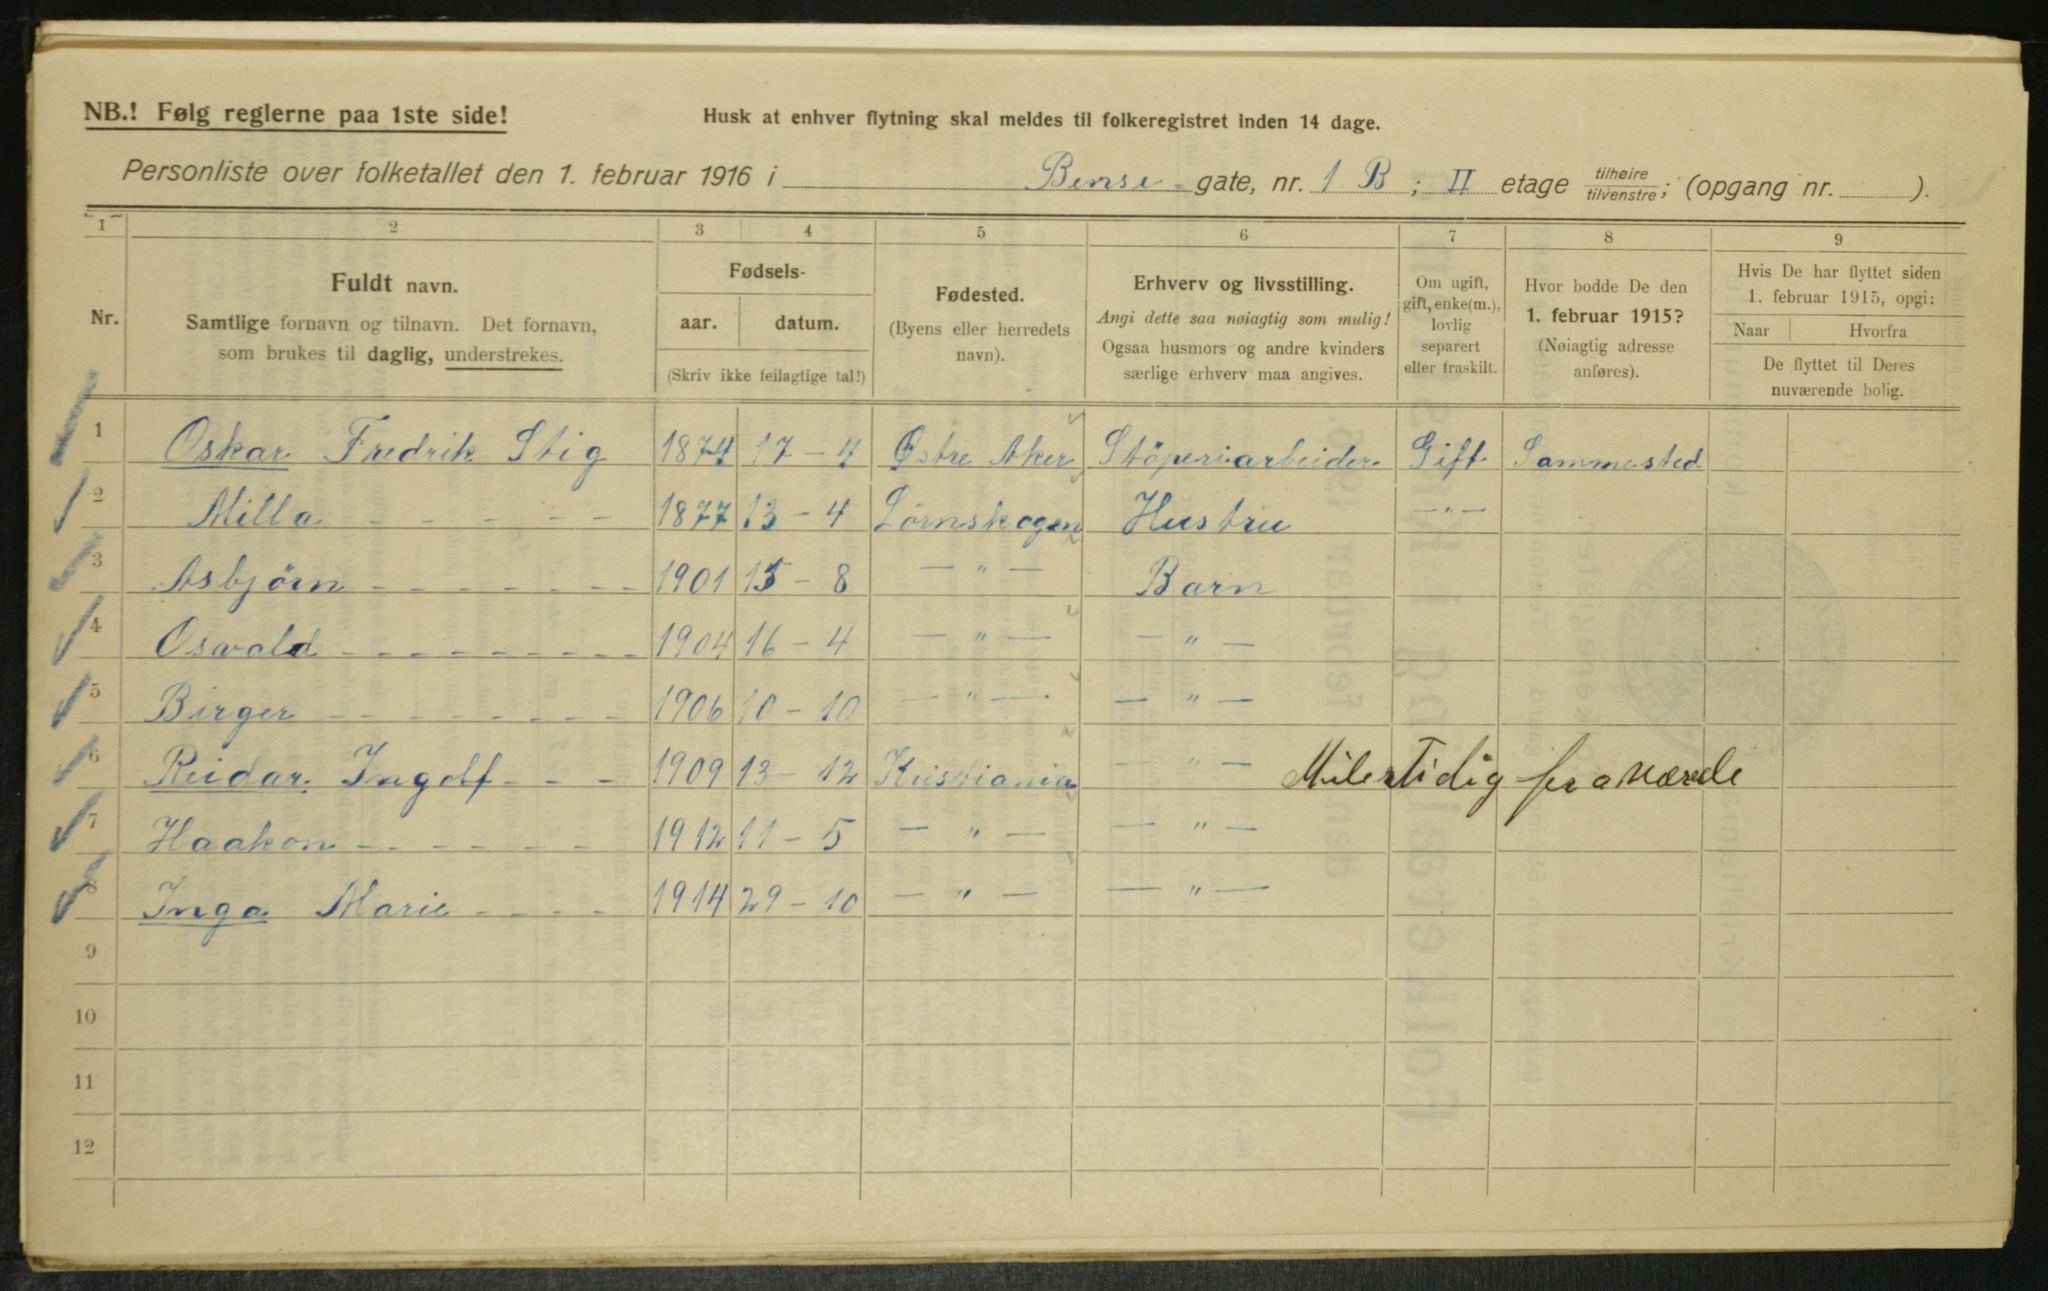 NB.! Følg reglerne paa 1ste side!
Husk at enhver flytning skal meldes til folkeregistret inden 14 dage.
Personliste over folketallet den 1. februar 1916 i Bense-gate, nr. 1 B; II etage tilhøire/tilvenstre; (opgang nr. ).
1 2 3 4 5 6 7 8 9
Nr.
Fuldt navn.
Samtlige fornavn og tilnavn. Det fornavn,
som brukes til daglig, understrekes.
Fødsels-
aar. datum.
(Skriv ikke feilagtige tal!)
Fødested.
(Byens eller herredets
navn).
Erhverv og livsstilling.
Angi dette saa nøiagtig som mulig!
Ogsaa husmors og andre kvinders
særlige erhverv maa angives.
Om ugift,
gift, enke(m.),
lovlig
separert
eller fraskilt.
Hvor bodde De den
1. februar 1915?
(Nøiagtig adresse
anføres).
Hvis De har flyttet siden
1. februar 1915, opgi:
Naar Hvorfra
De flyttet til Deres
nuværende bolig.
1 Oskar Fredrik Stig 1874 17 - 4 Østre Aker Stöperiarbeider Gift Sammested
2 Milla - - - - - 1877 13 - 4 Lørnskogen Hustru — " —
3 Asbjørn - - - - - - - 1901 15 - 8 — " — Barn
4 Osvald - - - - - - - - - 1904 16 - 4 — " — — " —
5 Birger - - - - - - - - 1906 10 - 10 — " — — " —
6 Reidar. Ingolf - - - 1909 13 - 12 Kristiania — " — Milertidig fraværde
7 Haakon - - - - - - 1912 11 - 5 — " — — " —
8 Inga Marie - - - - 1914 29 - 10 — " — — " —
9
10
11
12